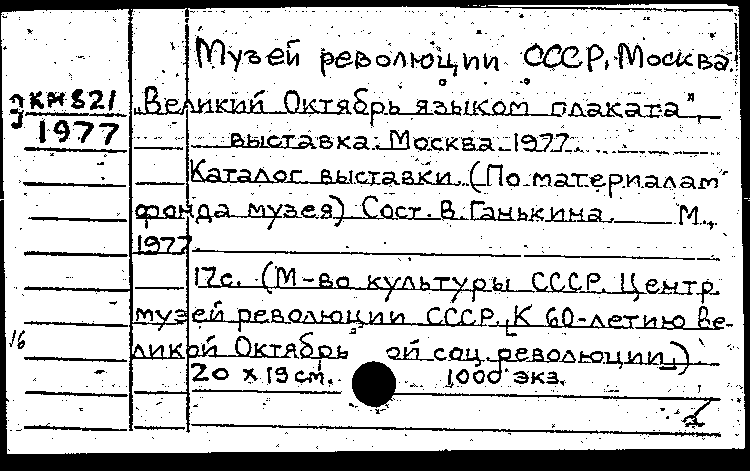 Музей революции СССР, Москва.
КМ 821 „Великий Октябрь языком плаката",
1977 выставка. Москва. 1977.
Каталог выставки. (По материалам
фонда музея) Сост. В. Ганькина. М.,
1977.
12с. (М-во культуры СССР. Центр.
музей революции СССР. К 60-летию Ве-
16 ликой Октябрь ой соц. революции).
20 x 19 см. 1000 экз.